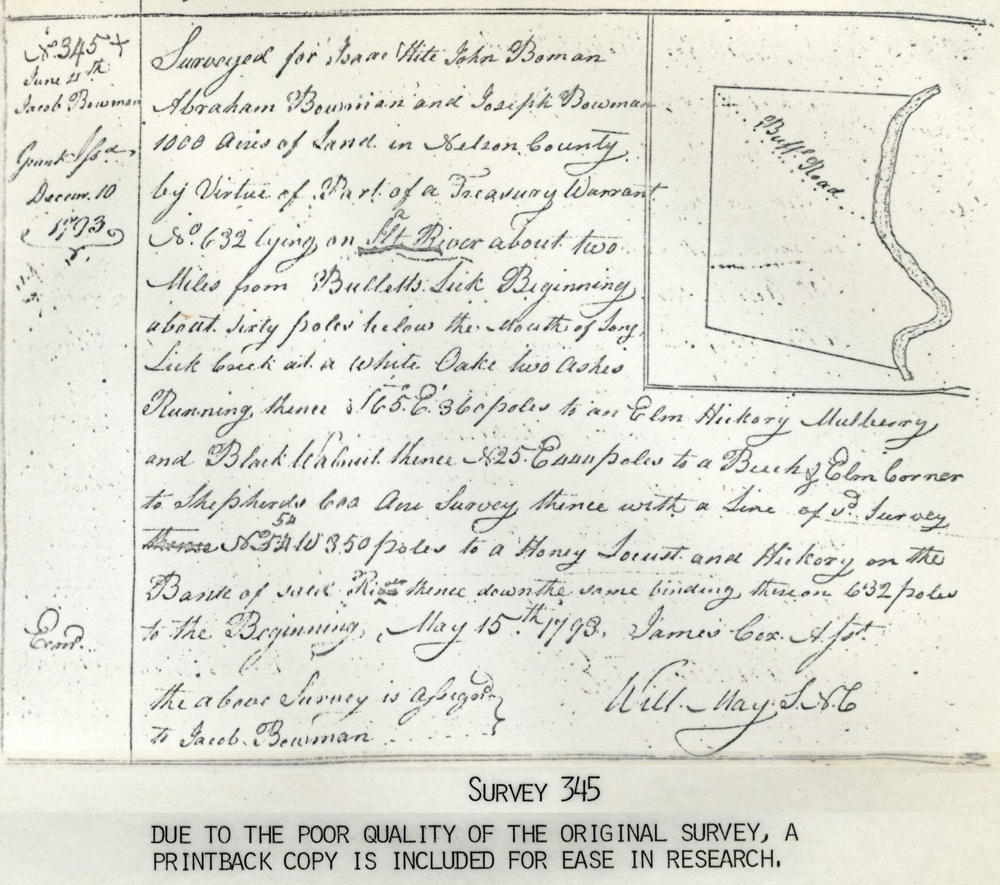 No. 345 +
June 4th
Jacob Bowman
Grant Issd.
Decem. 10
1793
Exmd.
Surveyed for Isaac Hite John Boman
Abraham Bowman and Joseph Bowman
1000 Acres of Land in Nelson County
by Virtue of Part of a Treasury Warrant
No. 632 lying on Slt River about two
Miles from Bulletts Lick Beginning
about Sixty poles below the Mouth of Long
Lick Creek at a White Oake two Ashes
Running thence S65.E. 360 poles to an Elm Hickory Mulberry
and Black Walnut thence N25.E 444 poles to a Beech & Elm Corner
to Shepherds 600 Acre Survey thence with a Line of sd. Survey
thence N 54 W 350 poles to a Honey Locust and Hickory on the
Bank of said River thence down the same binding thereon 632 poles
to the Beginning, May 15th 1793. James Cox Asst.
the above Survey is assigned
to Jacob Bowman
Will. May S.N.C
Buff. Road
SURVEY 345
DUE TO THE POOR QUALITY OF THE ORIGINAL SURVEY, A
PRINTBACK COPY IS INCLUDED FOR EASE IN RESEARCH.